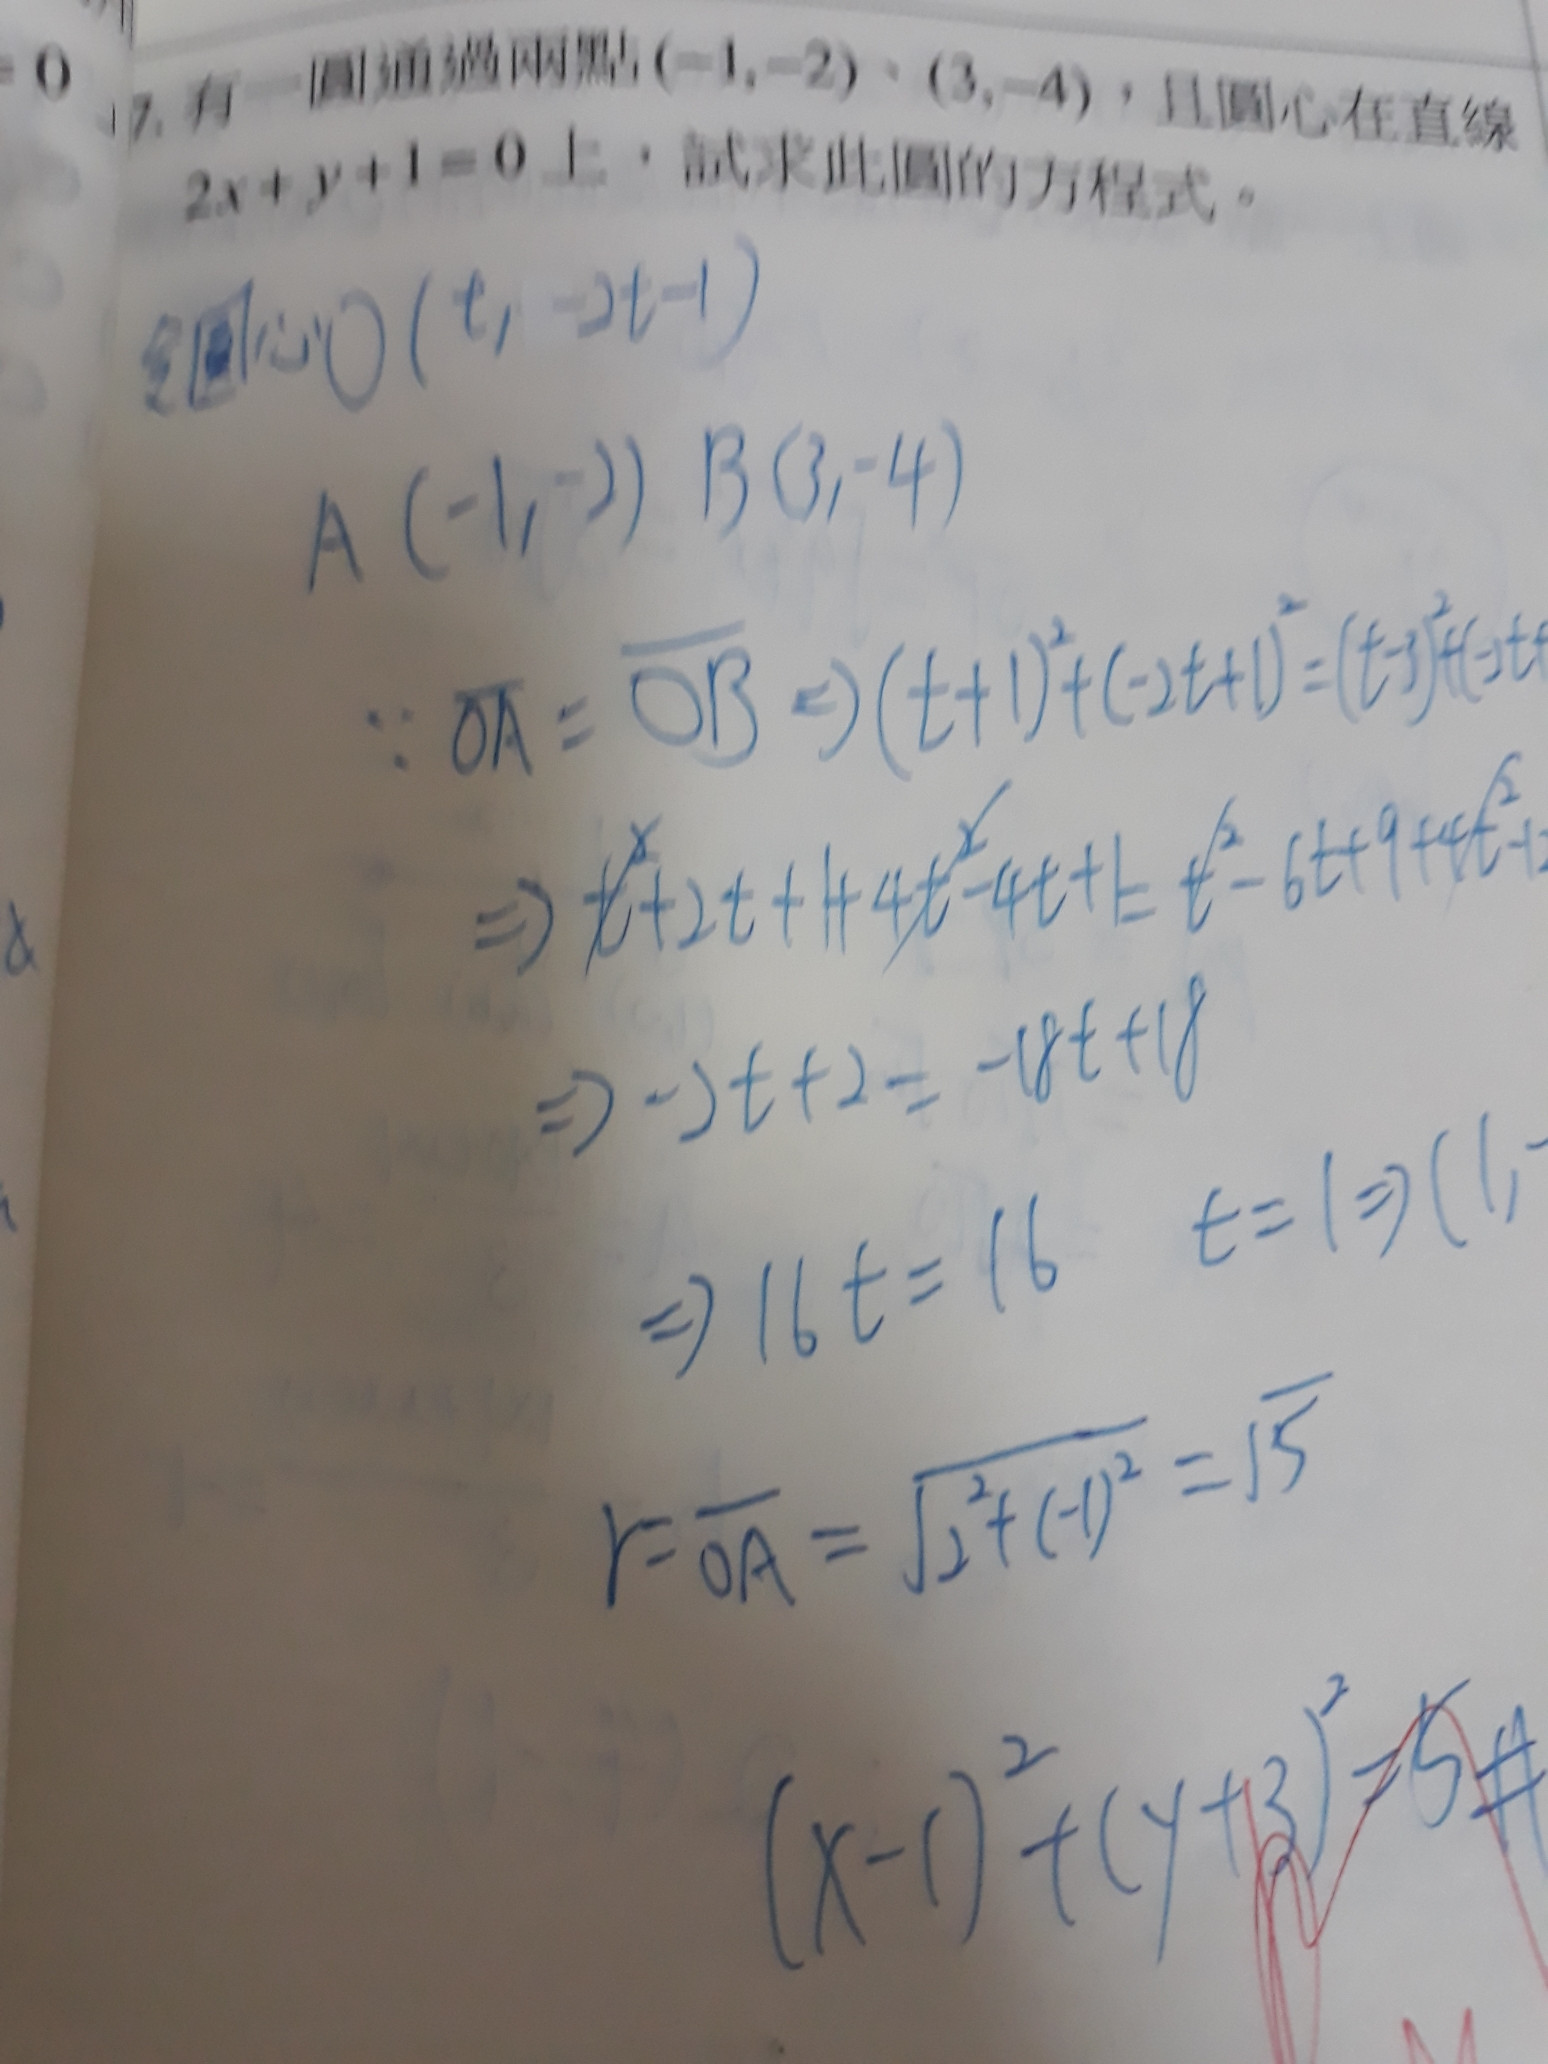 = 0
17. 有一圓通過兩點(−1,−2)、(3,−4),且圓心在直線
2x+y+1=0上,試求此圓的方程式。
圓心O(t, -2t-1)
A(-1,-2) B(3,-4)
∵ OA = OB ⇒ (t+1)²+(-2t+1)²=(t-3)²+(-2t+
⇒ t²+2t+1+4t²-4t+1=t²-6t+9+4t²-12
⇒ -2t+2=-18t+18
⇒ 16t=16 t=1⇒(1,-
r=OA=√2²+(-1)²=√5
(x-1)²+(y+3)²=5#